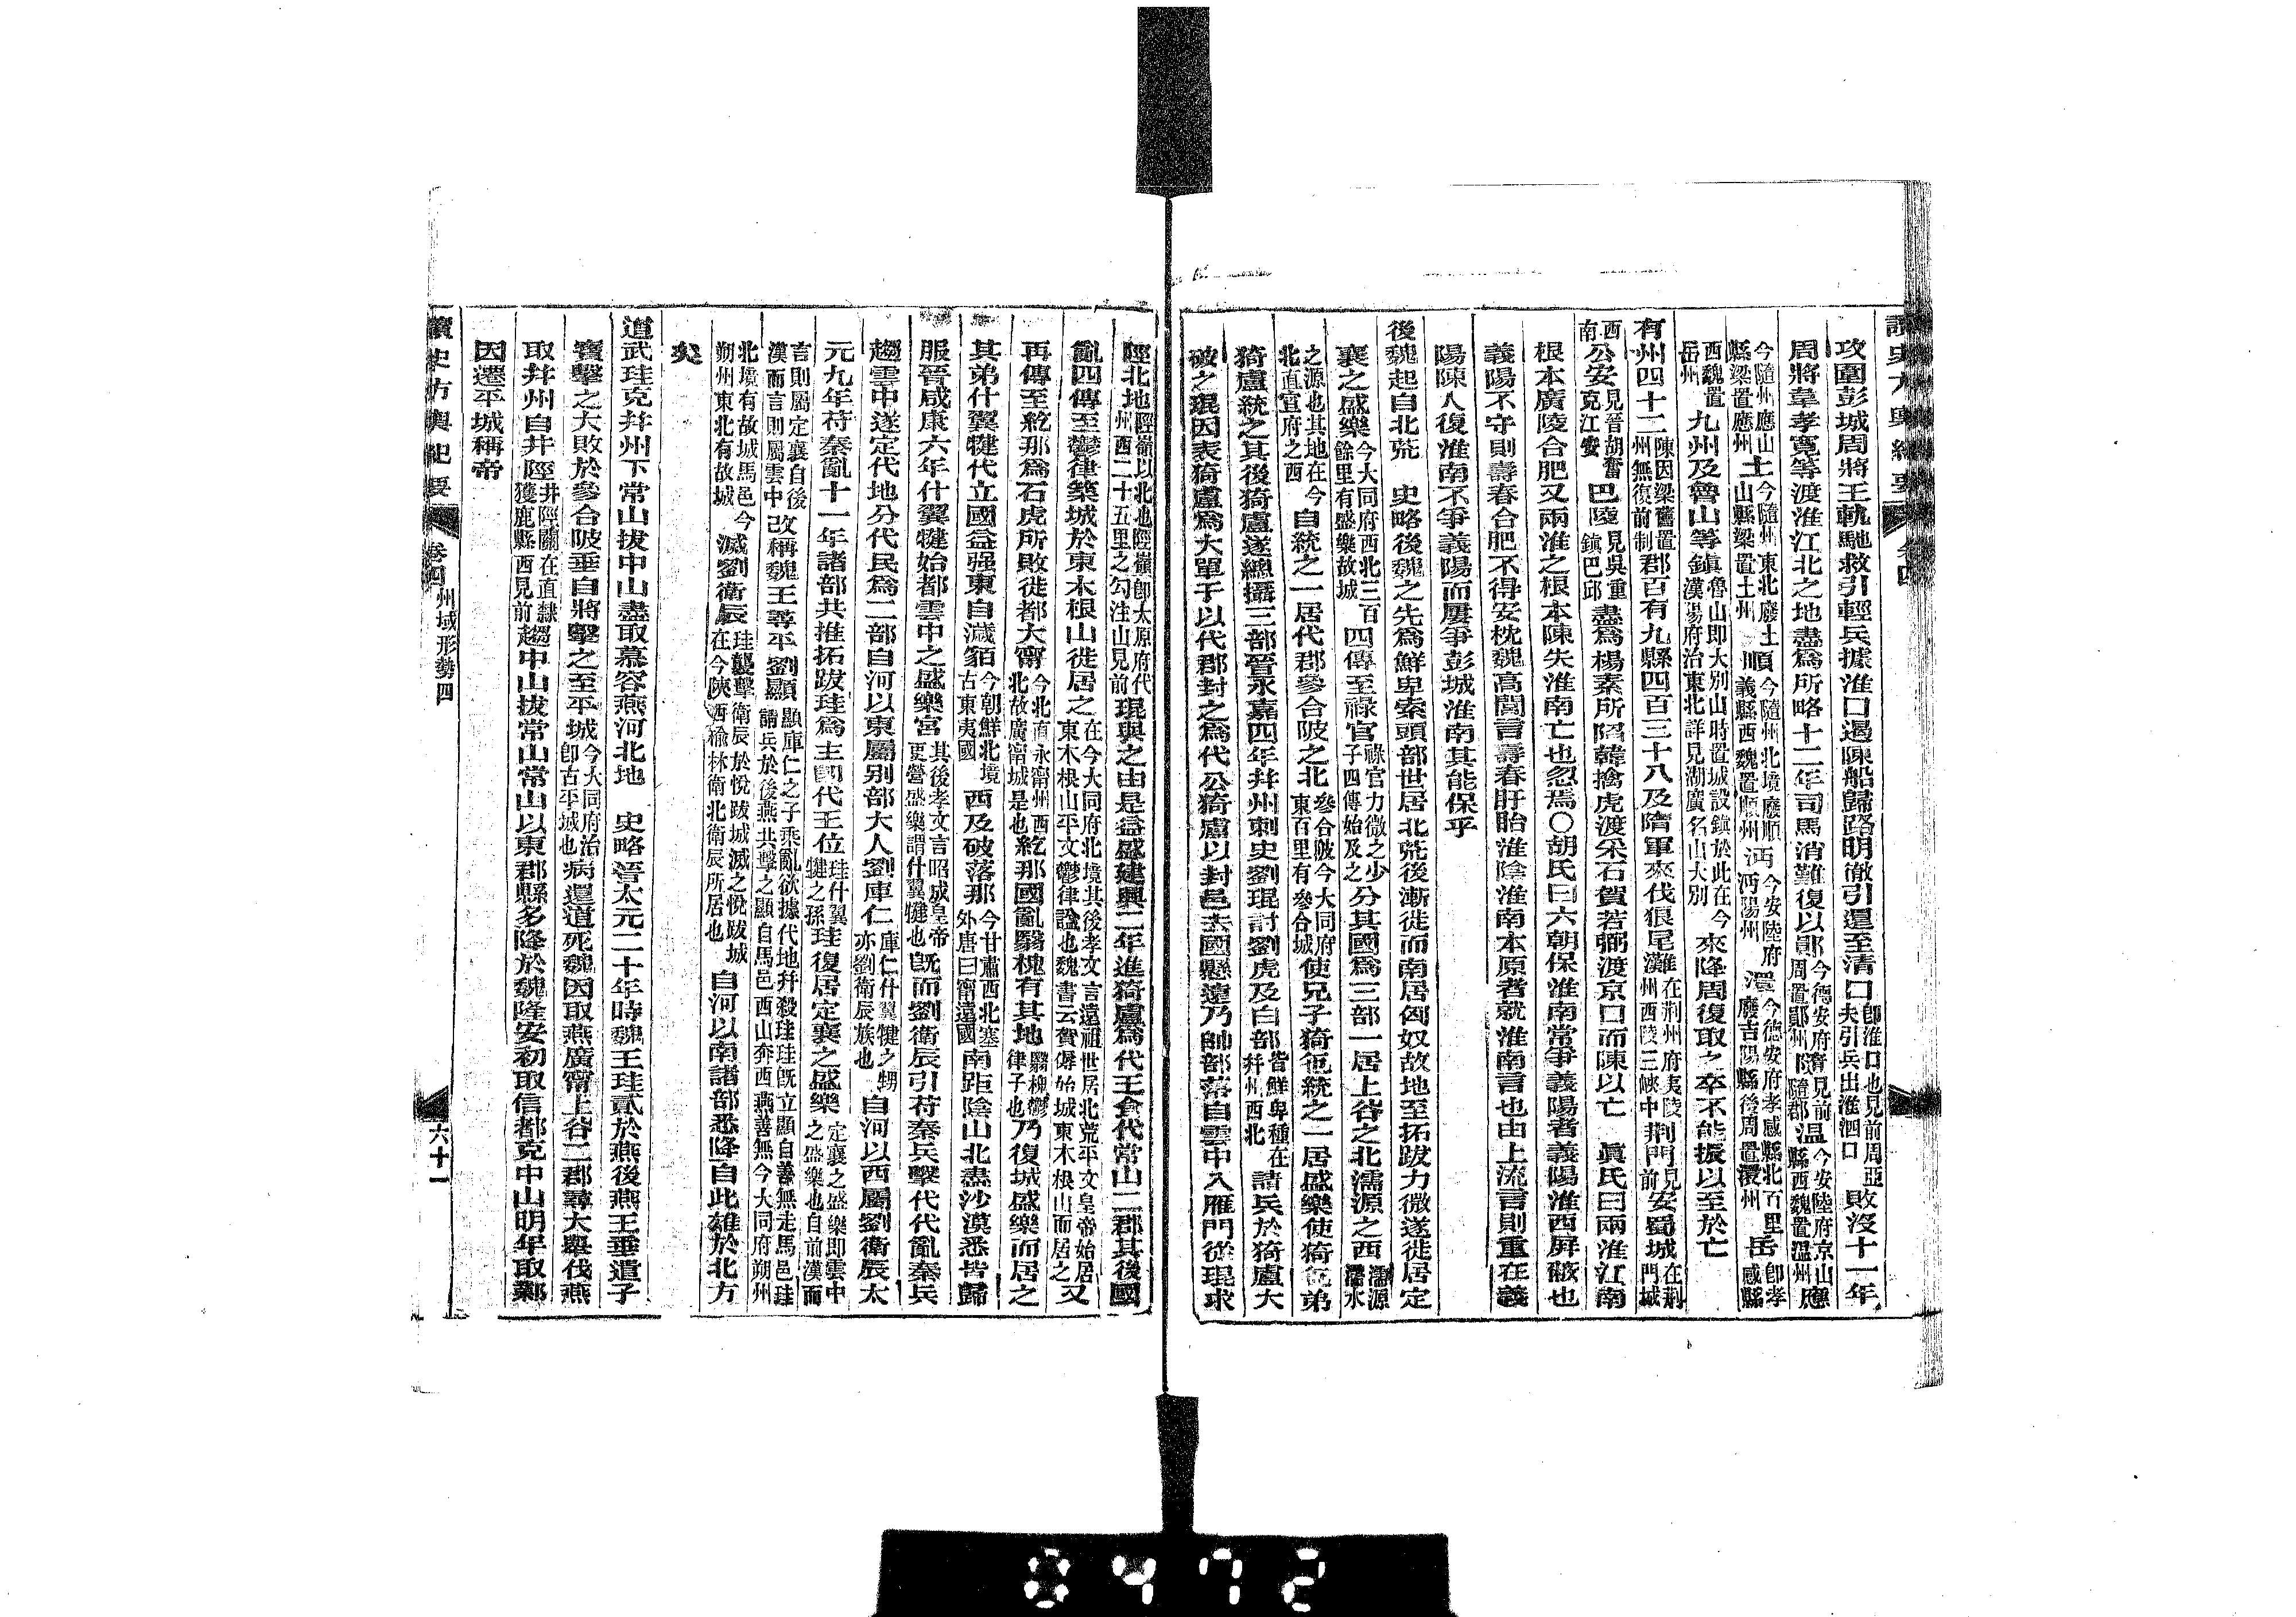 攻圍彭城周將王軌馳救引輕兵據淮口遏陳船歸路明徹引還至清口卽淮口也見前周亞夫引兵出淮泗口敗沒十一年
周將韋孝寬等渡淮江北之地盡爲所略十二年司馬消難復以鄖今德安府周置鄖州隨見前隨郡溫今安陸府京山縣西魏置溫州應
今隨州應山縣梁置應州土今隨州東北廢土山縣梁置土州順今隨州北境廢順義縣西魏置順州沔今安陸府沔陽州澴今德安府孝感縣北百里廢吉陽縣後周置澴州岳卽孝感縣
西魏置岳州九州及魯山等鎮魯山卽大別山時置城設鎮於此在今漢陽府治東北詳見湖廣名山大別來降周復取之卒不能振以至於亡
有州四十二陳因梁舊置州無復前制郡百有九縣四百三十八及隋軍來伐狼尾灘在荆州府夷陵州西陵三峽中荆門見前安蜀城在荆門城
西南公安見晉胡奮克江安巴陵見吳重鎮巴邱盡爲楊素所陷韓擒虎渡采石賀若弼渡京口而陳以亡　眞氏曰兩淮江南
根本廣陵合肥又兩淮之根本陳失淮南亡也忽焉〇胡氏曰六朝保淮南常爭義陽者義陽淮西屏蔽也
義陽不守則壽春合肥不得安枕魏高閭言壽春盱眙淮陰淮南本原者就淮南言也由上流言則重在義
陽陳人復淮南不爭義陽而屢爭彭城淮南其能保乎
後魏起自北荒　史略後魏之先爲鮮卑索頭部世居北荒後漸徙而南居匈奴故地至拓跋力微遂徙居定
襄之盛樂今大同府西北三百餘里有盛樂故城四傳至祿官祿官力微之少子四傳始及之分其國爲三部一居上谷之北濡源之西濡源濡水
之源也其地在今北直宣府之西北自統之一居代郡參合陂之北參合陂今大同府東百里有參合城使兄子猗㐌統之一居盛樂使猗㐌弟
猗盧統之其後猗盧遂總攝三部晉永嘉四年幷州刺史劉琨討劉虎及白部皆鮮卑種在幷州西北請兵於猗盧大
破之琨因表猗盧爲大單于以代郡封之爲代公猗盧以封邑去國懸遠乃帥部落自雲中入雁門從琨求
陘北地陘嶺以北也陘嶺卽太原府代州西二十五里之勾注山見前琨與之由是益盛建興二年進猗盧爲代王食代常山二郡其後國
亂四傳至鬱律築城於東木根山徙居之在今大同府北境其後孝文言遠祖世居北荒平文皇帝始居東木根山平文鬱律諡也魏書云賀傉始城東木根山而居之又
再傳至紇那爲石虎所敗徙都大甯今北直永甯州西北故廣甯城是也紇那國亂翳槐有其地翳槐鬱律子也乃復城盛樂而居之
其弟什翼犍代立國益强東自濊貊今朝鮮北境古東夷國西及破落那今甘肅西北塞外唐曰甯遠國南距陰山北盡沙漠悉皆歸
服晉咸康六年什翼犍始都雲中之盛樂宮其後孝文言昭成皇帝更營盛樂謂什翼犍也旣而劉衛辰引苻秦兵擊代代亂秦兵
趨雲中遂定代地分代民爲二部自河以東屬別部大人劉庫仁庫仁什翼犍之甥亦劉衛辰族也自河以西屬劉衛辰太
元九年苻秦亂十一年諸部共推拓跋珪爲主卽代王位珪什翼犍之孫珪復居定襄之盛樂定襄之盛樂卽雲中之盛樂也自前漢而
言則屬定襄自後漢而言則屬雲中改稱魏王尋平劉顯顯庫仁之子乘亂欲據代地幷殺珪珪旣立顯自善無走馬邑珪請兵於後燕共擊之顯自馬邑西山奔西燕善無今大同府朔州
北境有故城馬邑今朔州東北有故城滅劉衛辰珪襲擊衛辰於悅跋城滅之悅跋城在今陝西楡林衛北衛辰所居也自河以南諸部悉降自此雄於北方
矣
道武珪克幷州下常山拔中山盡取慕容燕河北地　史略晉太元二十年時魏王珪貳於燕後燕王垂遣子
寶擊之大敗於參合陂垂自將擊之至平城今大同府治卽古平城也病還道死魏因取燕廣甯上谷二郡尋大舉伐燕
取幷州自井陘井陘關在直隸獲鹿縣西見前趨中山拔常山常山以東郡縣多降於魏隆安初取信都克中山明年取鄴
因遷平城稱帝
讀史方輿紀要　卷四　州域形勢四　六十一
8472